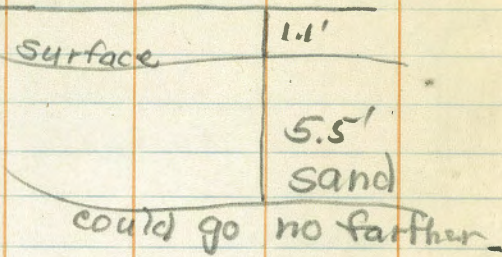 1.1'
surface
5.5'
sand
could go no farther